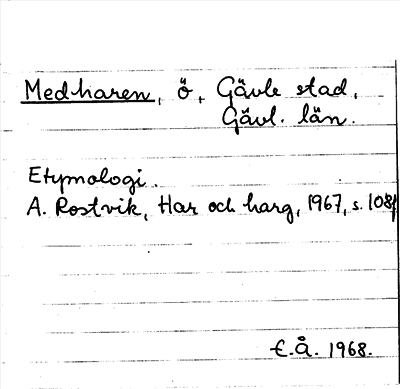 Medharen, ö, Gävle stad,
Gävl. län.
Etymologi.
A. Rostvik, Har och harg, 1967, s. 108f
E.Å. 1968.